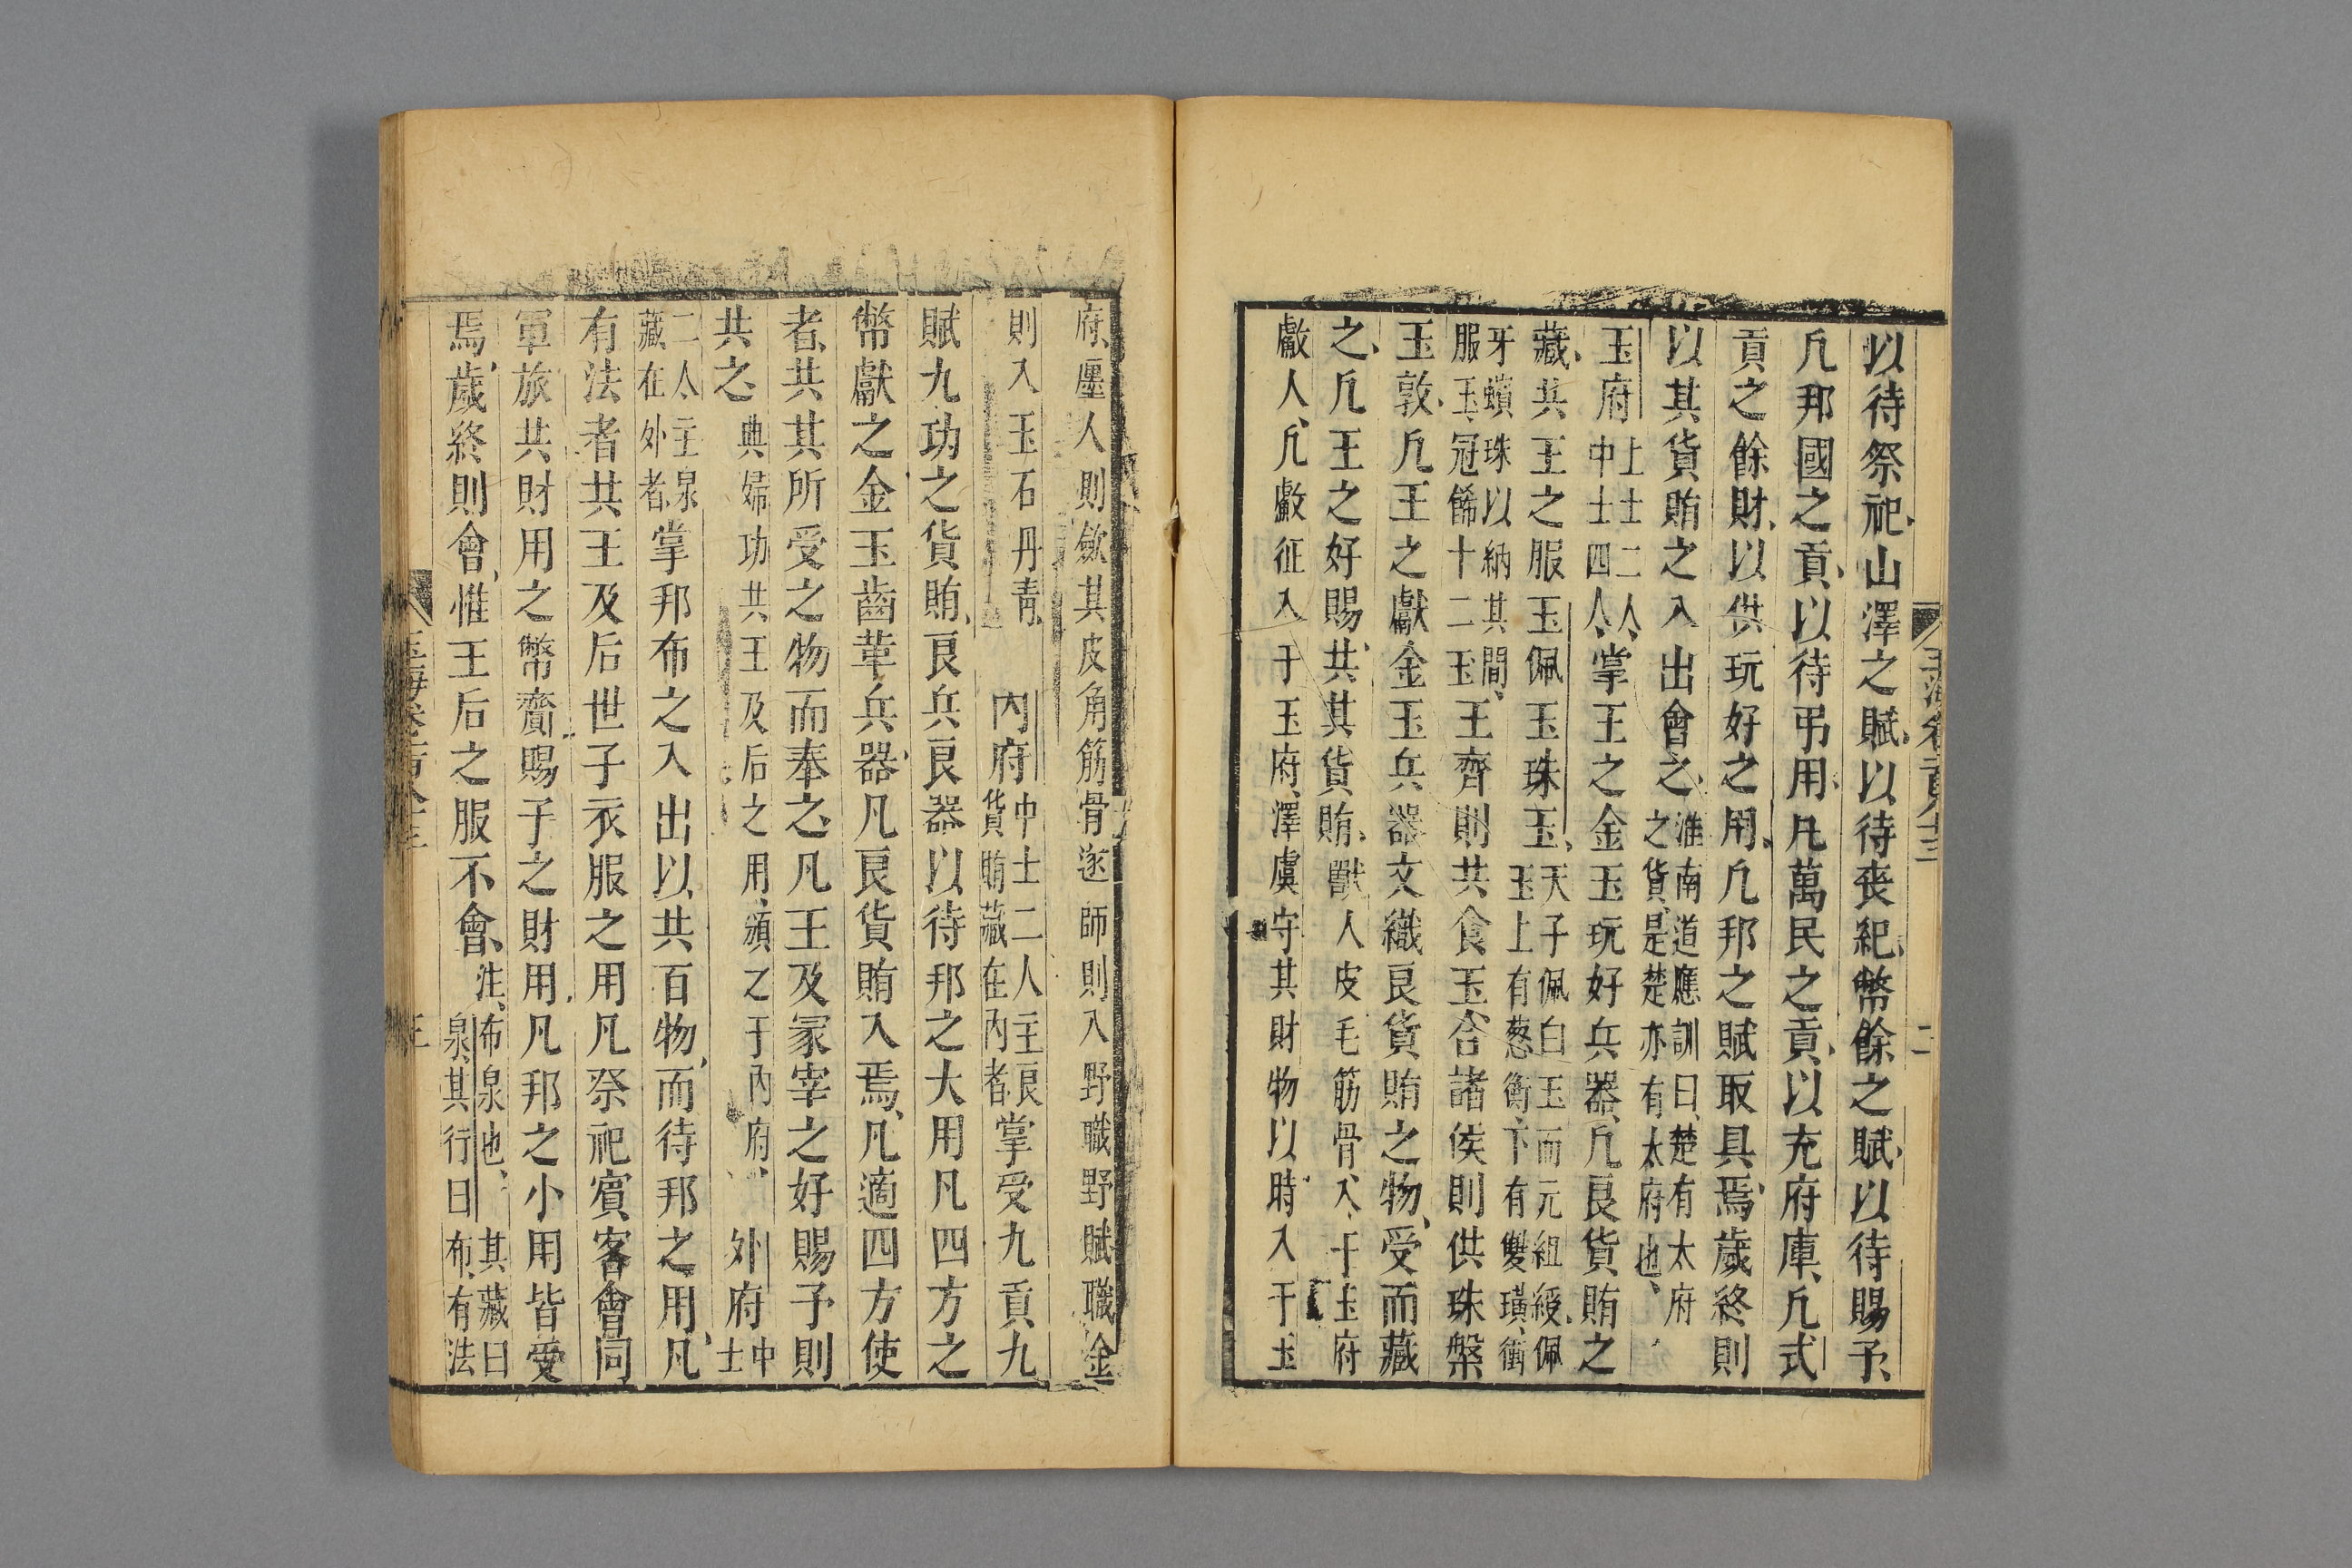 以待祭祀山澤之賦以待喪紀幣餘之賦以待賜予
凡邦國之貢以待弔用凡萬民之貢以充府庫凡式
貢之餘財以供玩好之用凡邦之賦取具焉歲終則
以其貨賄之入出會之淮南道應訓曰楚有太府
之貨是楚亦有太府也
玉府上士二人
中士四人掌王之金玉玩好兵器凡良貨賄之
藏共王之服玉佩玉珠玉天子佩白玉而元組綬佩
玉上有葱衡下有雙璜衝
牙蠙珠以納其間
服玉冠飾十二玉王齊則共食玉合諸侯則供珠槃
玉敦凡王之獻金玉兵器文織良貨賄之物受而藏
之凡王之好賜共其貨賄獸人皮毛筋骨入于玉府
䱷人凡䱷征入于玉府澤虞守其財物以時入于玉
府廛人則斂其皮角筋骨遂師則入野職野賦職金
則入玉石丹青
內府中士二人主良
貨賄藏在內者掌受九貢九
賦九功之貨賄良兵良器以待邦之大用凡四方之
幣獻之金玉齒革兵器凡良貨賄入焉凡適四方使
者共其所受之物而奉之凡王及冢宰之好賜予則
共之典婦功共王及后之用頒之于內府
外府中
士
二人主泉
藏在外者掌邦布之入出以共百物而待邦之用凡
有法者共王及后世子衣服之用凡祭祀賓客會同
軍旅共財用之幣齎賜予之財用凡邦之小用皆受
焉歲終則會惟王后之服不會注布泉也其藏曰
泉其行曰布有法